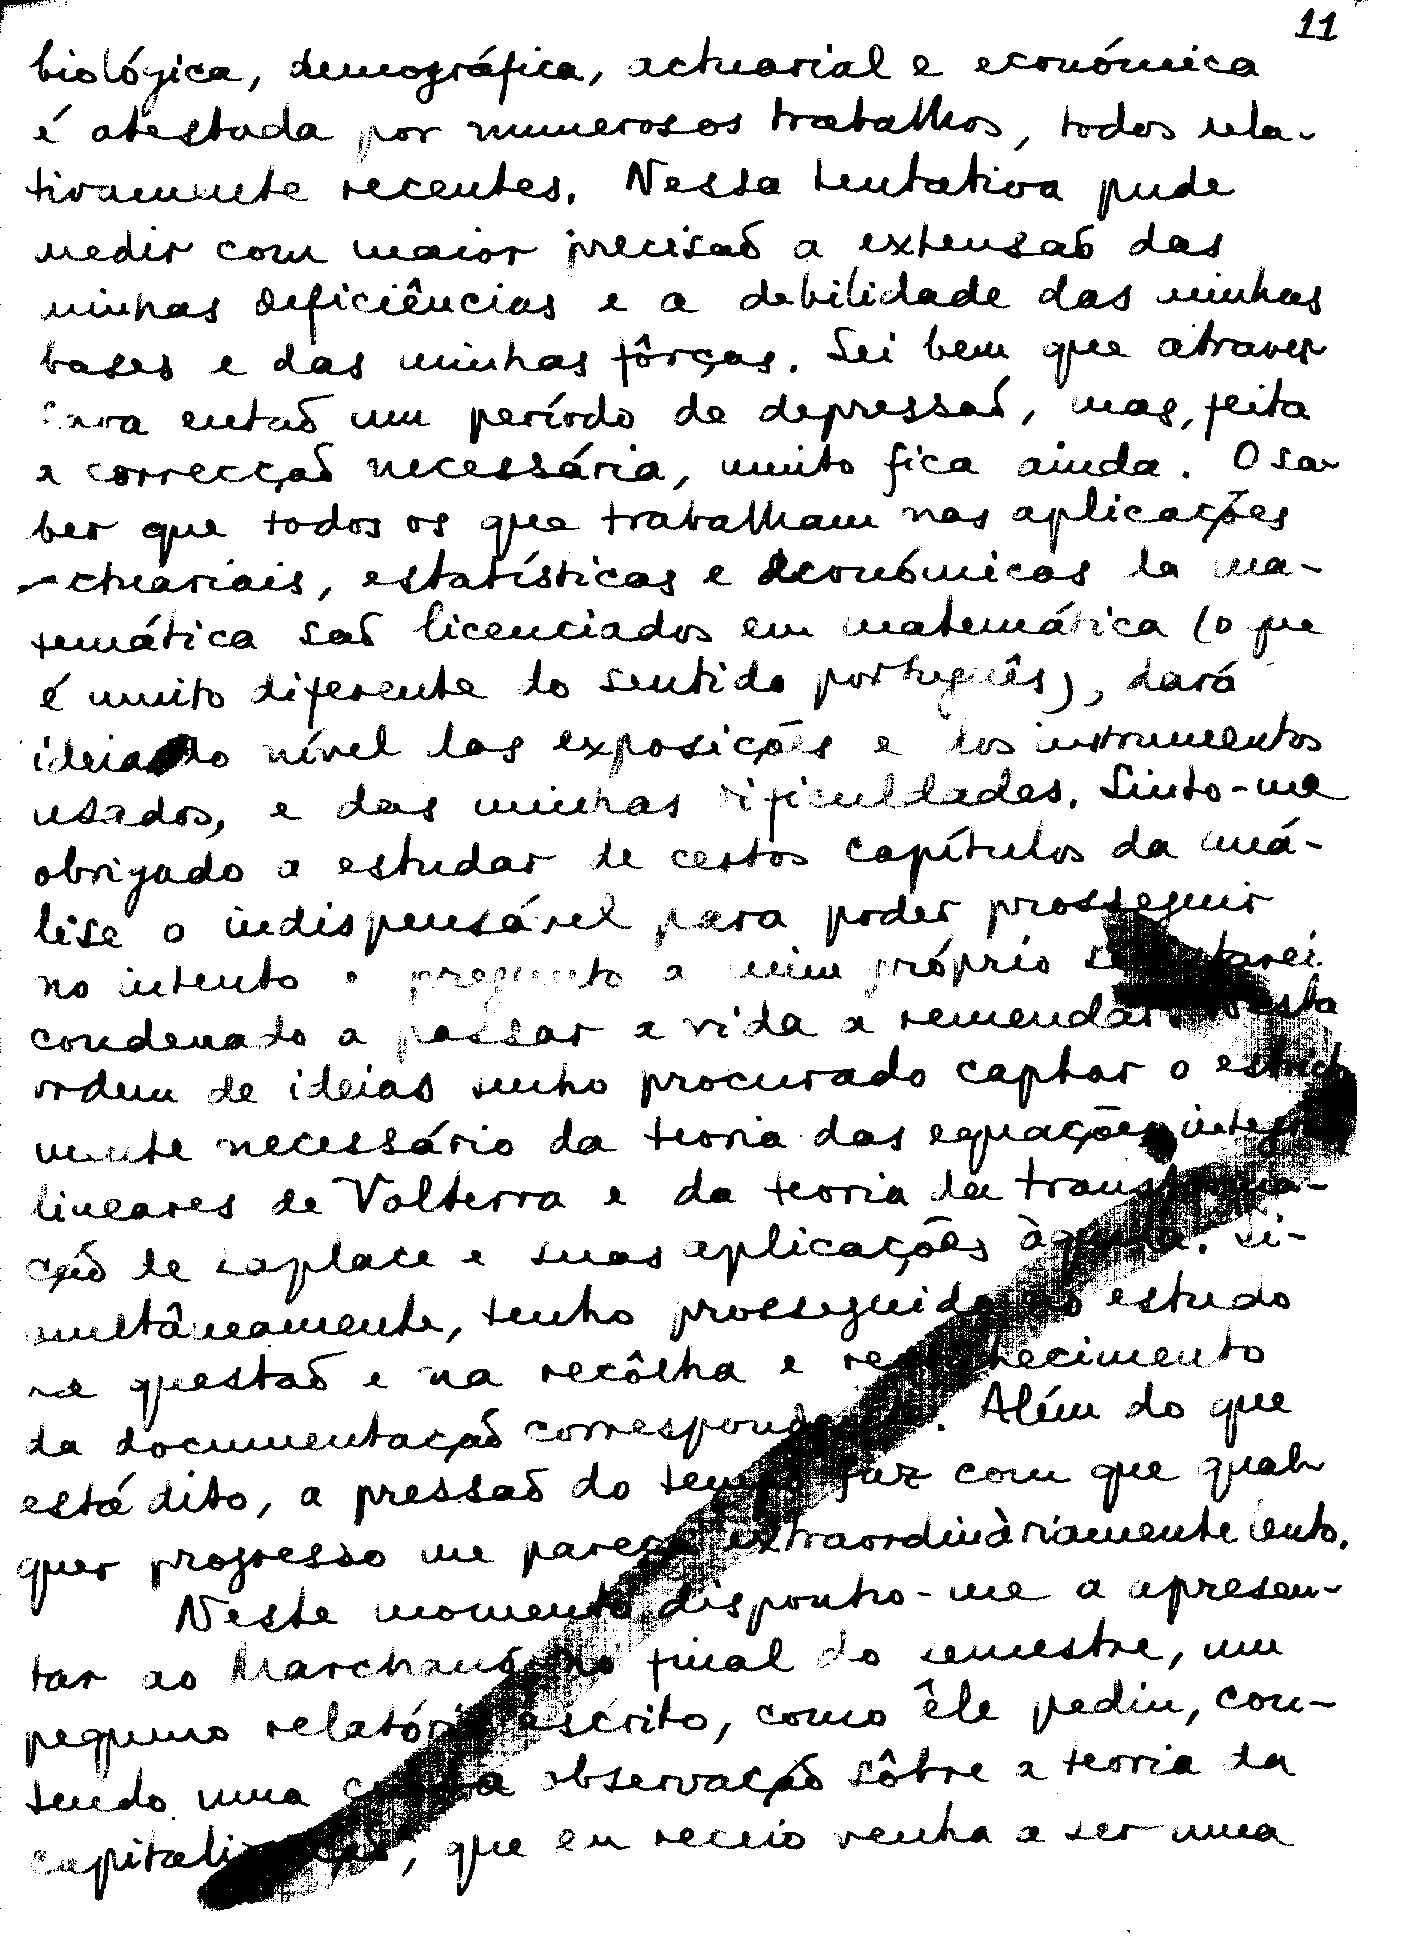 11
biológica, demográfica, actuarial e económica
é atestada por numerosos trabalhos, todos rela-
tivamente recentes. Nessa tentativa pude
medir com maior precisaõ a extensaõ das
minhas deficiências e a debilidade das minhas
bases e das minhas fôrças. Sei bem que atraves-
sara entaõ um período de depressaõ, mas, feita
a correcçaõ necessária, muito fica ainda. O sa-
ber que todos os que trabalham nas aplicações
actuariais, estatísticas e económicas da ma-
temática saõ licenciados em matemática (o que
é muito diferente do sentido português), dará
ideia do nível das exposições e dos instrumentos
usados, e das minhas dificuldades. Sinto-me
obrigado a estudar de certos capítulos da aná-
lise o indispensável para poder prosseguir
no intento e pregunto a mim próprio se estarei
condenado a passar a vida a remendar. Nesta
ordem de ideias tenho procurado captar o
mente necessário da teoria das equações
lineares de Volterra e da teoria da transforma-
çaõ de Laplace e suas aplicações àquela. Si-
multâneamente, tenho prosseguido no estudo
na questaõ e na recôlha e reconhecimento
da documentaçaõ correspondente. Além do que
está dito, a pressaõ do tempo faz com que qual-
quer progresso me pareça extraordinàriamente lento.
Neste momento disponho-me a apresen-
tar ao Marchand, no final do semestre, um
pequeno relatório escrito, como êle pediu, con-
tendo uma observaçaõ sôbre a teoria da
capitalizaçaõ, que eu receio venha a ser uma